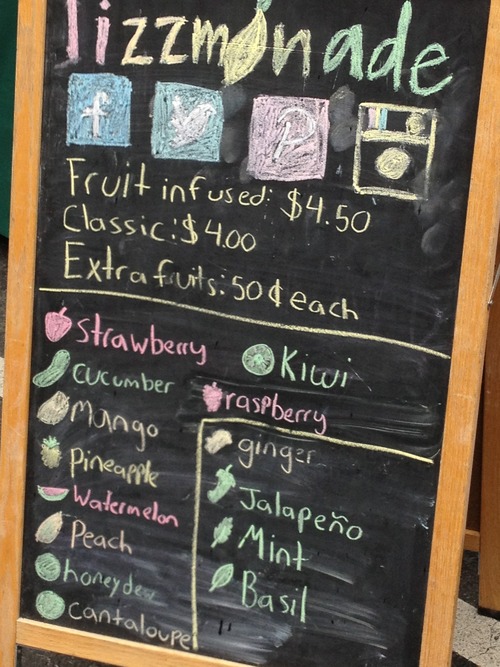 lizzmonade
f
P
Fruit infused: $4.50
Classic: $4.00
Extra fruits: 50¢ each
Strawberry
Cucumber
Mango
Pineapple
Watermelon
Peach
honeydew
cantaloupe
Kiwi
raspberry
ginger
Jalapeño
Mint
Basil